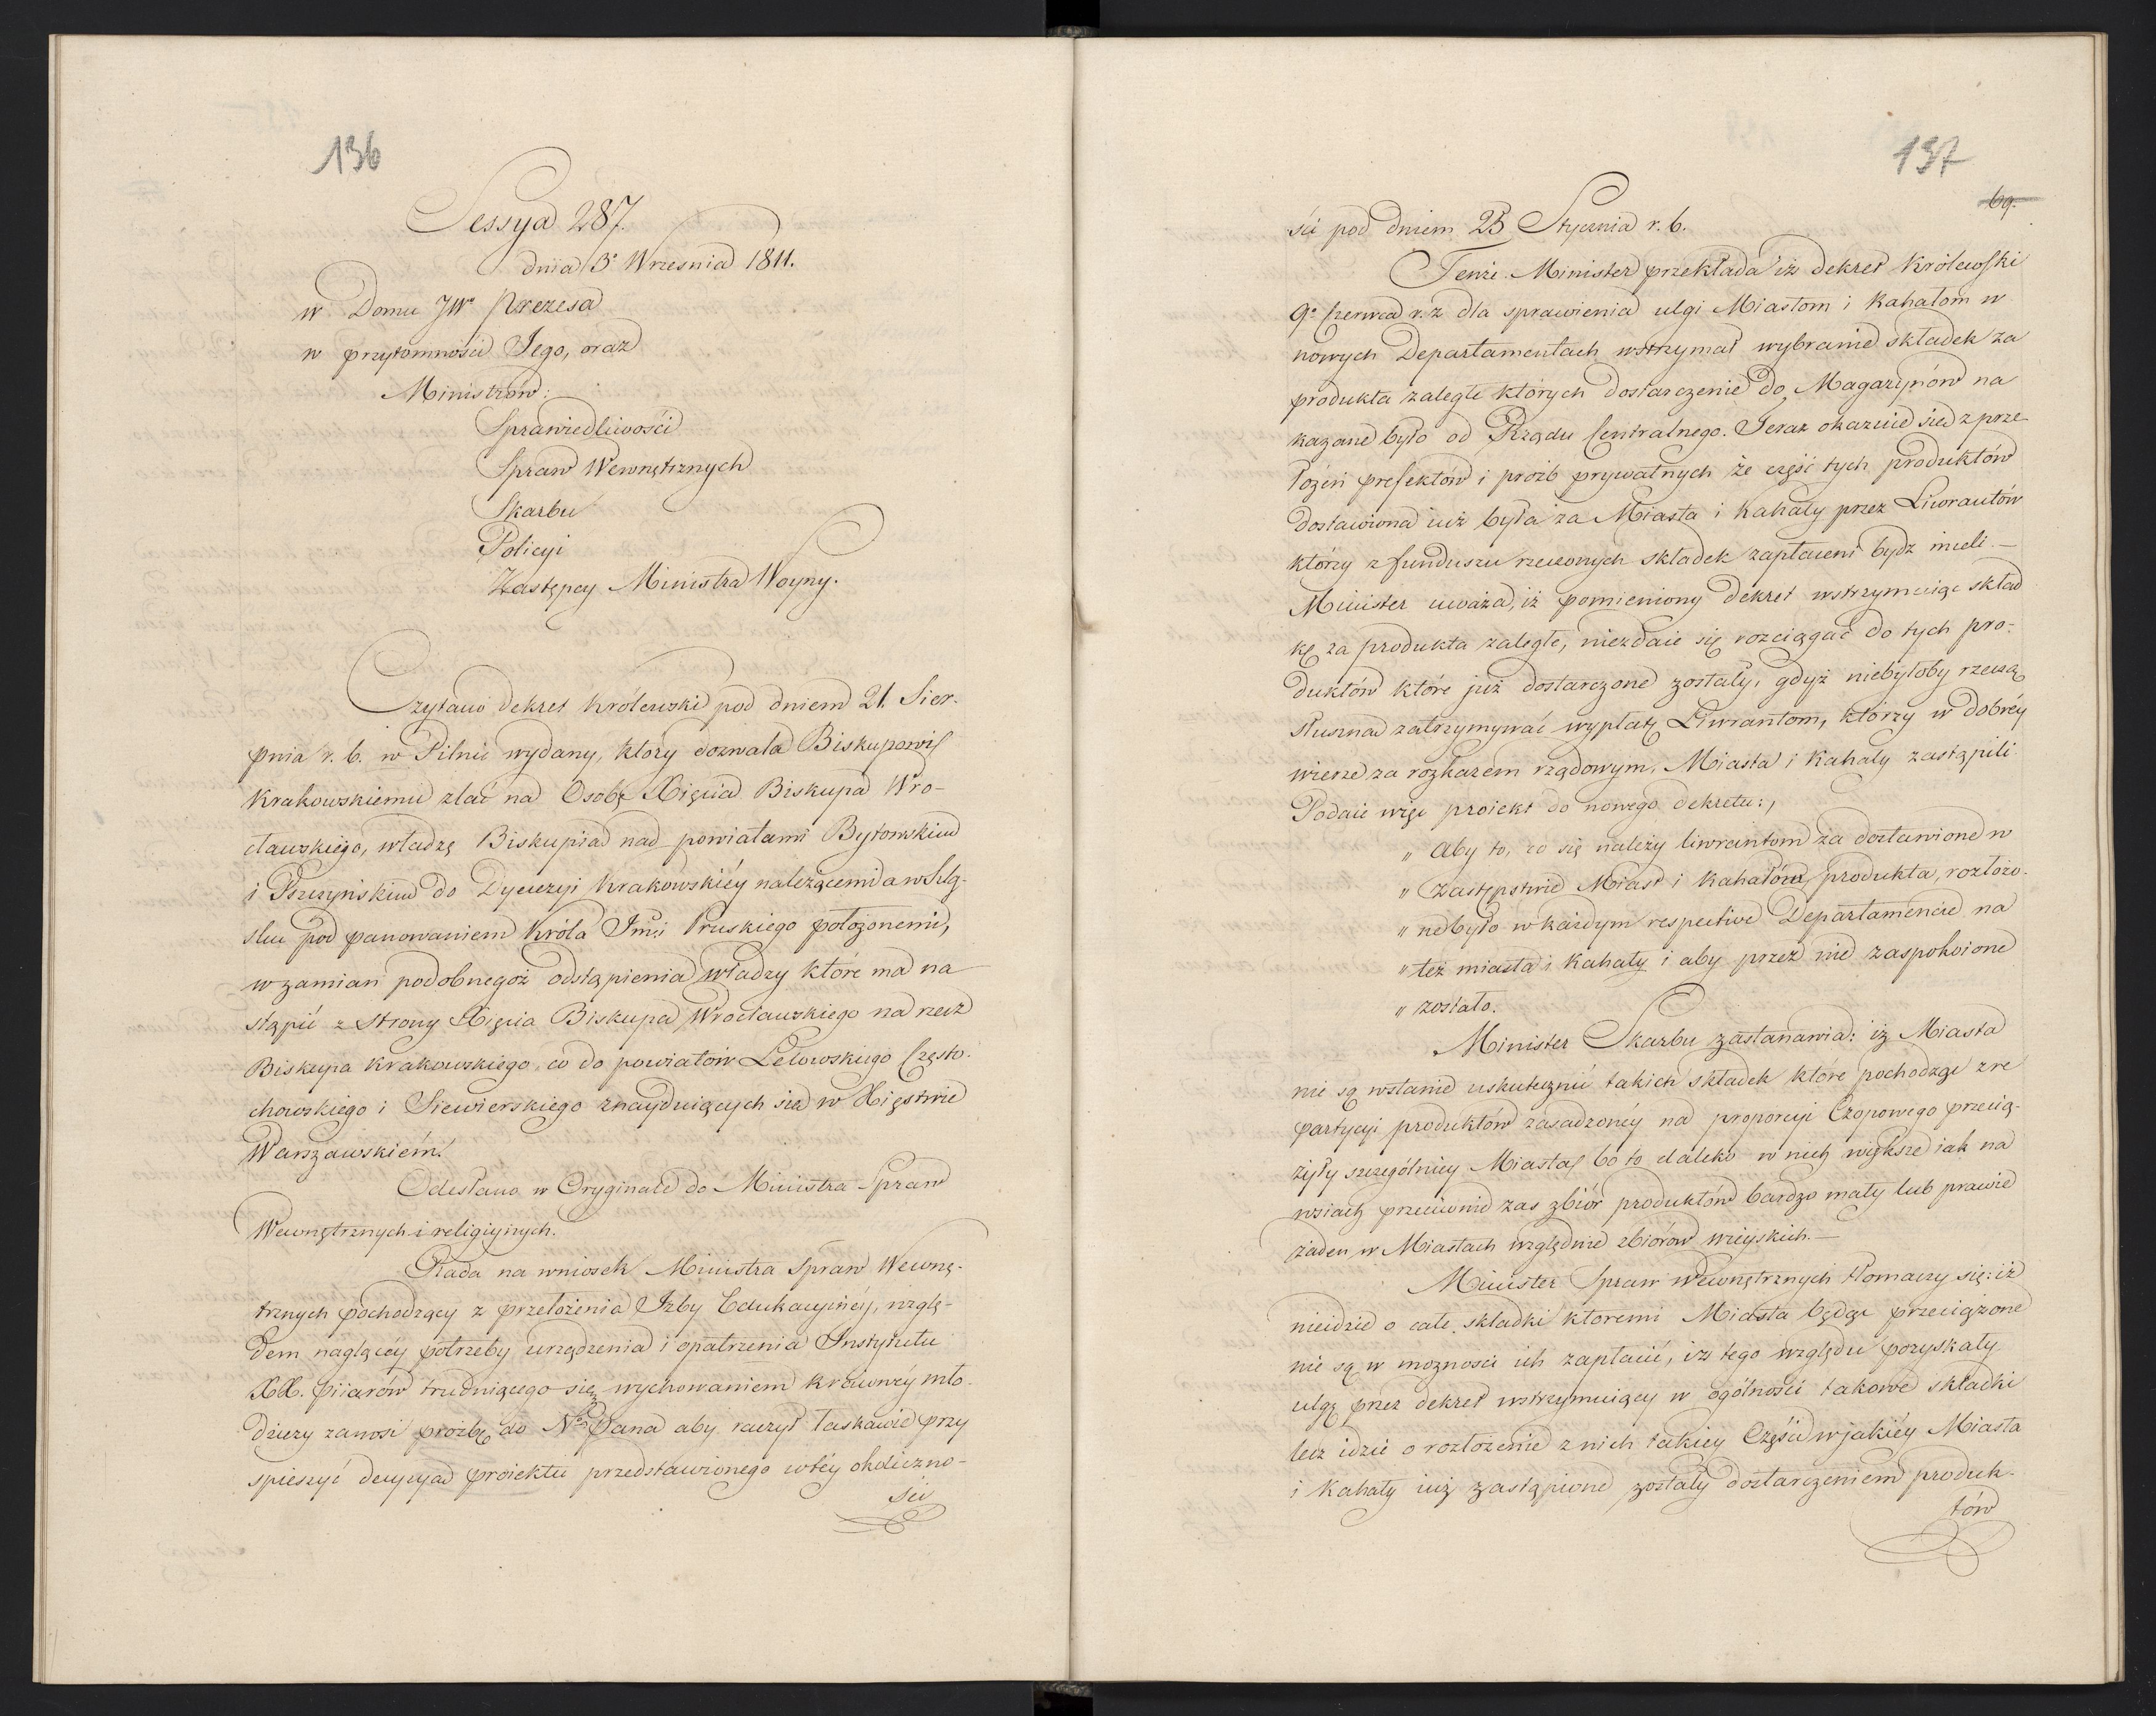 136
Sessya 287.
dnia 3º Wrzesnia 1811.
w Domu JWº Prezesa
w przytomności Jego, oraz
Ministrów:
Sprawiedliwości
Spraw Wewnętrznych
Skarbu
Policyi
Zastępcy Ministra Woyny.
Czytano dekret Królewski pod dniem 21. Sier-
pnia r. b. w Pilnic wydany, który dozwala Biskupowi
Krakowskiemu zlać na Osobę Xięcia Biskupa Wro-
cławskiego, władzę Biskupią nad powiatami Bytomskim
i Pszczyńskim do Dyecezyi Krakowskiéy należącemi a w Szlą-
sku pod panowaniem Króla Jmci Pruskiego położonemi,
w zamian podobnegoż odstąpienia władzy które ma na
stąpić z Strony Xięcia Biskupa Wrocławskiego na rzecz
Biskupa Krakowskiego, co do powiatów Lelowskiego Często-
chowskiego i Siewierskiego znayduiących się w Xięstwie
Warszawskiém.
Odesłano w Oryginale do Ministra Spraw
Wewnętrznych i religiynych.
Rada na wniosek Ministra Spraw Wewnę-
trznych pochodzący z przełożenia Izby Edukacyinéy, wzglę-
dem naglącéy potrzeby urządzenia i opatrzenia Instytutu
XX. Piiarów trudniącego się wychowaniem kraiowéy mło-
dzieży zanosi prożbę do Nº Pana aby raczył łaskawie przy
spieszyć decyzyą proiektu przedstawionego w téy okoliczno-
ści
137
69.
ści pod dniem 25 Stycznia r. b.
Tenże Minister przekłada iż dekret Królewski
9º Czerwca r. z dla sprawienia ulgi Miastom i Kahałom w
nowych Departamentach wstrzymał wybranie składek za
produkta zaległe których dostarczenie do Magazynów na
kazane było od Rządu Centralnego. Teraz okazuie się z prze-
łożeń prefektów i proźb prywatnych że część tych produktów
dostawiona iuż była za Miasta i Kahały przez Liwrantów
którzy z funduszu rzeczonych składek zapłaceni bydz mieli. —
Minister uważa, iż pomieniony dekret wstrzymuiąc skład
kę za produkta zaległe, niezdaie się rozciągać do tych pro-
duktów które już dostarczone zostały, gdyż niebyłoby rzeczą
słuszną zatrzymywać wypłatę Liwrantom, którzy w dobréy
wierze za rozkazem rządowym, Miasta i Kahały zastąpili
Podaie więc proiekt do nowego dekretu:,
„ Aby to, co się należy liwrantom za dostawione w
„ Zastępstwie Miast i Kahałów, produkta, rozłożo-
„ ne było w każdym respective Departamencie na
„ też miasta i Kahały i aby przez nie zaspokoione
„ zostało.
Minister Skarbu zastanawia: iż Miasta
nie są wstanie uskutecznić takich składek które pochodząc z re
partycyi produktów zasadzonéy na proporcyi Czopowego przecią-
żyły szczególniey Miasta, bo to daleko w nich większe iak na
wsiach przeciwnie zas zbiór produktów bardzo mały lub prawie
żaden w Miastach względnie zbiorów wieyskich. —
Minister Spraw Wewnętrznych tłomaczy się: iż
nieidzie o całe składki ktoremi Miasta będąc przeciążone
nie są w możnosci ich zapłacić, i z tego względu pozyskały
ulgę przez dekret wstrzymuiący w ogólności takowe składki
lecz idzie o rozłożenie z nich takiey Części w jakiéy Miasta
i Kahały iuż zastąpione zostały dostarczeniem produk-
tów